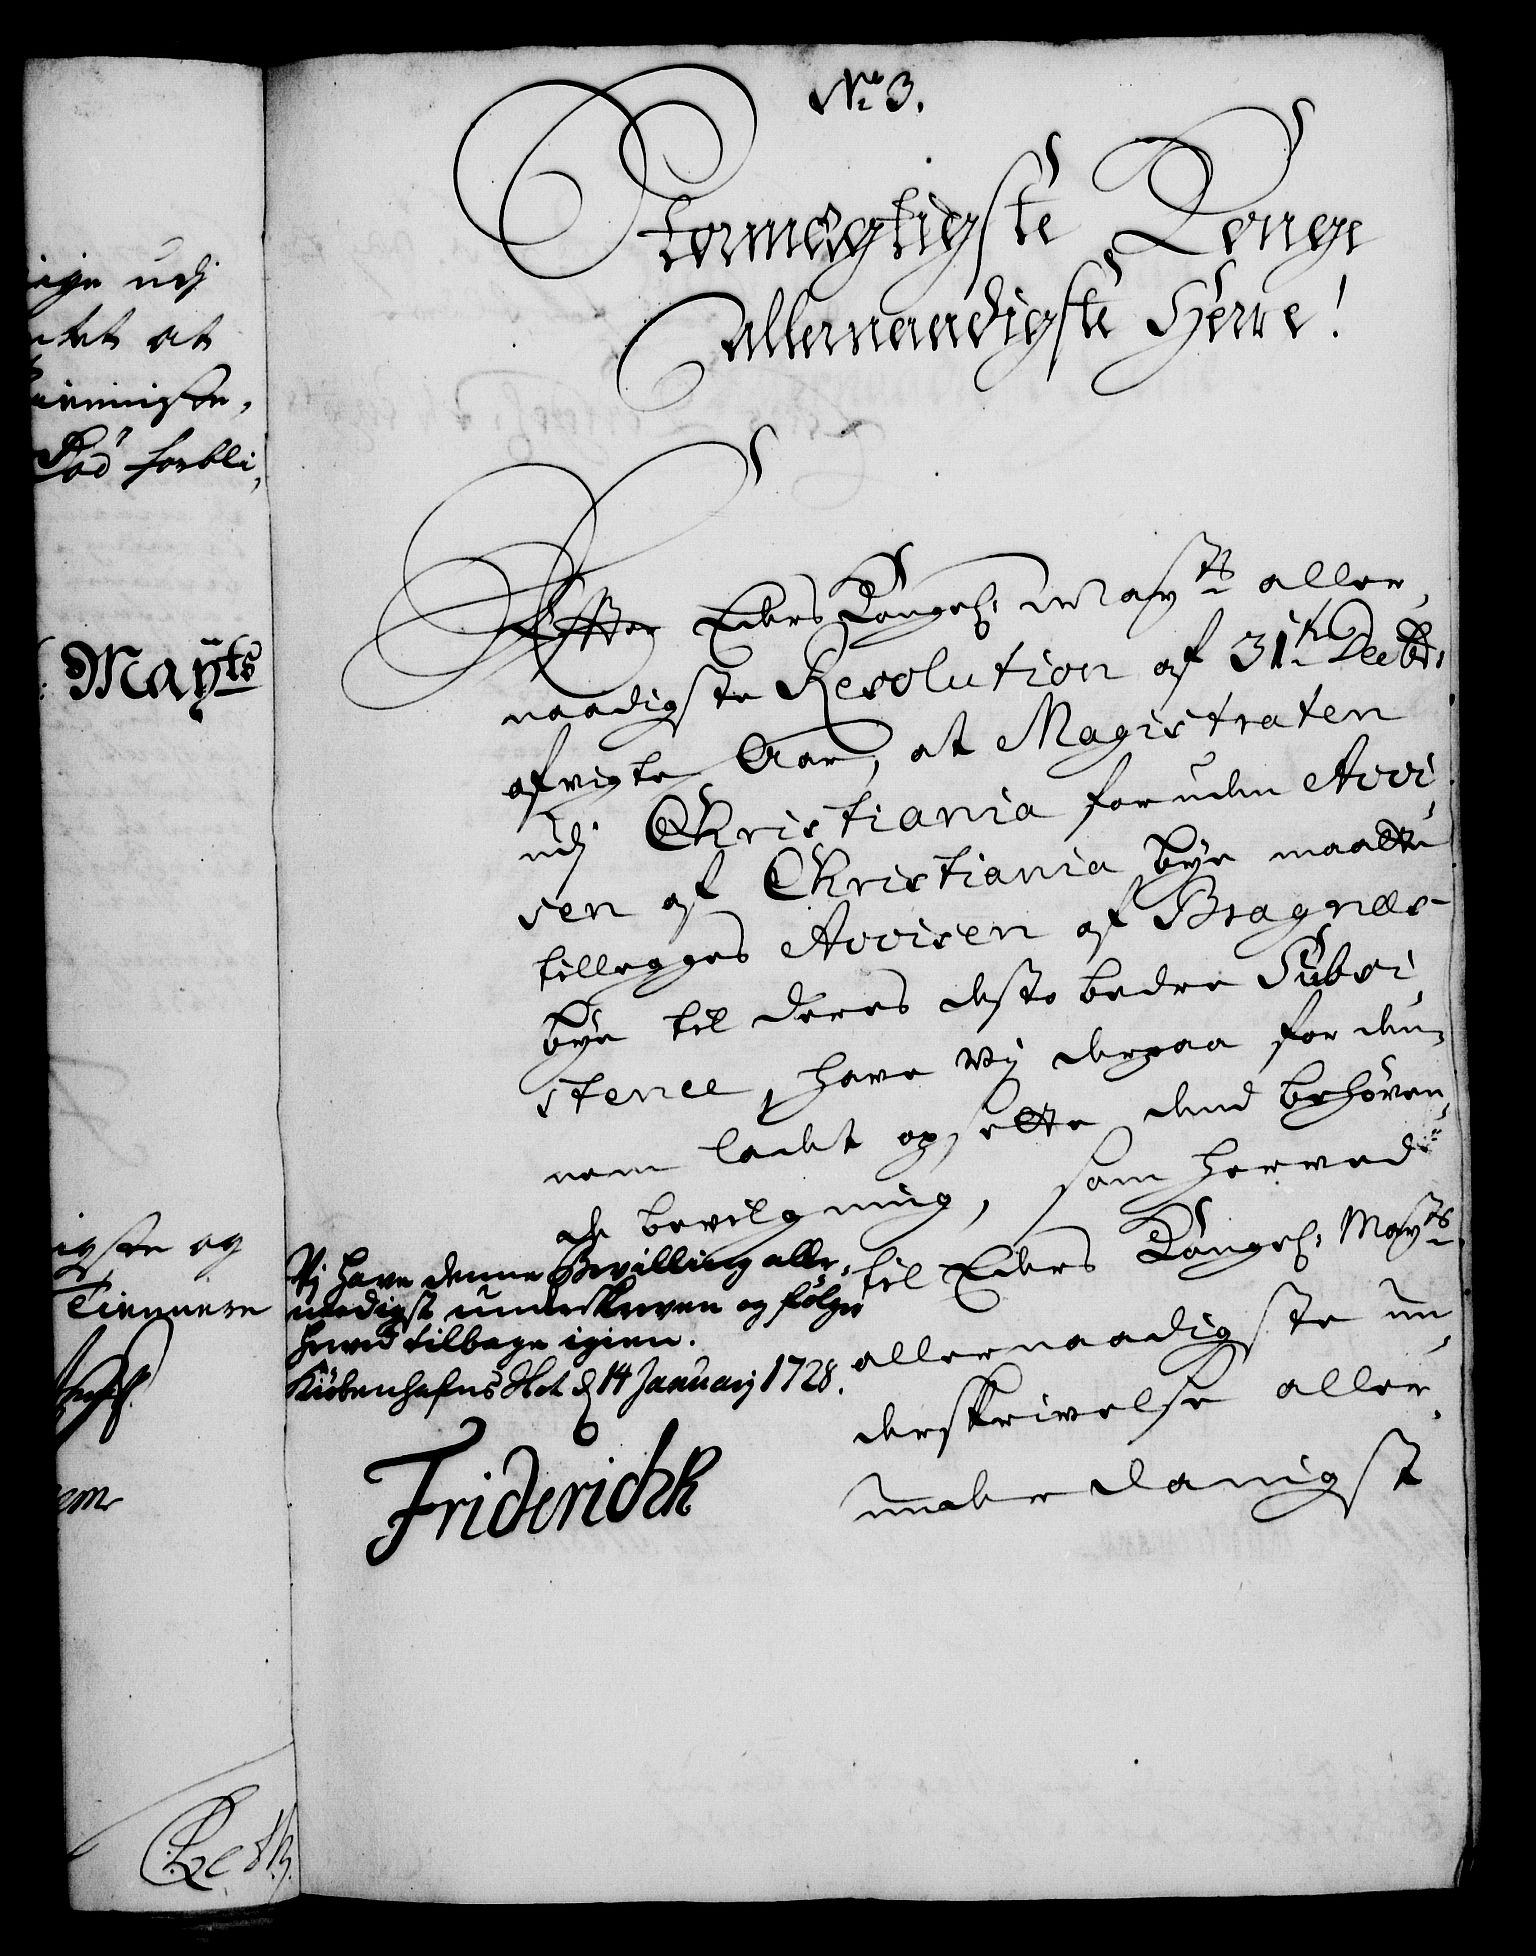 No 3.
Stormægtigste Konge
allernaadigste Herre!
Efter Eders Kongel: Maÿts aller,
naadigste Resolution af 31te Decbr:
afvigte Aar, at Magistraten
udj Christiania foruden Acci,
sen af Christiania bye maatte
tillegges Accisen af Bragnæs-
bye til deres desto bedre Subsi,
stence, have vj derpaa for den,
nem ladet opsette dend behøven,
de bevilgning, som herved
til Eders Kongel: Mayts
allernaadigste un,
derskrivelse aller,
underdanigst
Vj have denne Bevilling aller,
naadigst underskreven og følger
herved tilbage igien.
Kiøbenhafns Slot d 14 Januarj 1728.
Friderich R
udj
at
forbli,
Mayts
og
Tiennere